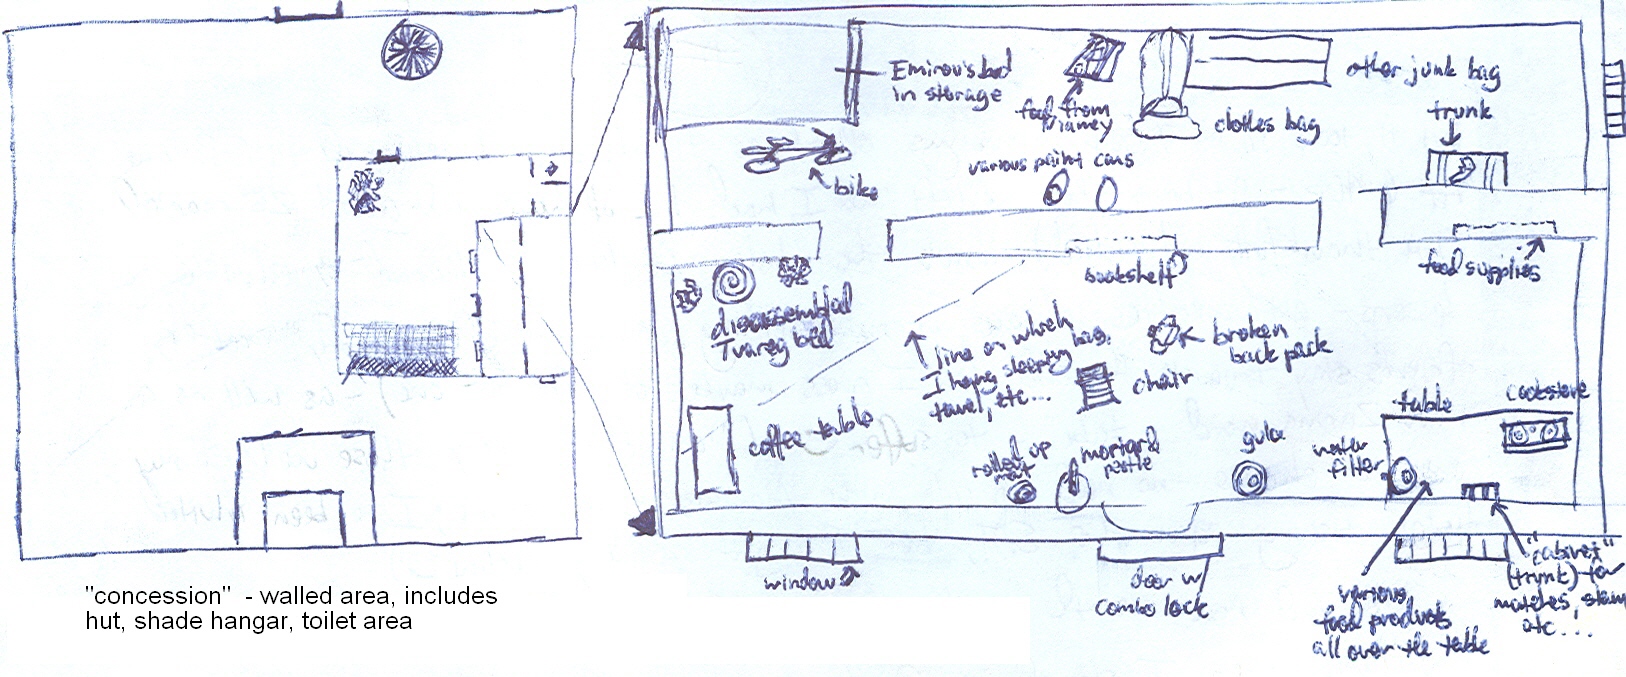 Emirou's bed
in storage
food from
Niamey
other junk bag
clothes bag
trunk
bike
various paint cans
bookshelf
food supplies
disassembled
Tuareg bed
line on which
I hang sleeping bag,
towel, etc...
broken
back pack
chair
coffee table
rolled up
mat
mortar &
pestle
gulla
water
filter
table
cookstove
window
door w/
combo lock
various
food products
all over the table
"cabinet"
(trunk) for
matches,
etc...
"concession" - walled area, includes
hut, shade hangar, toilet area